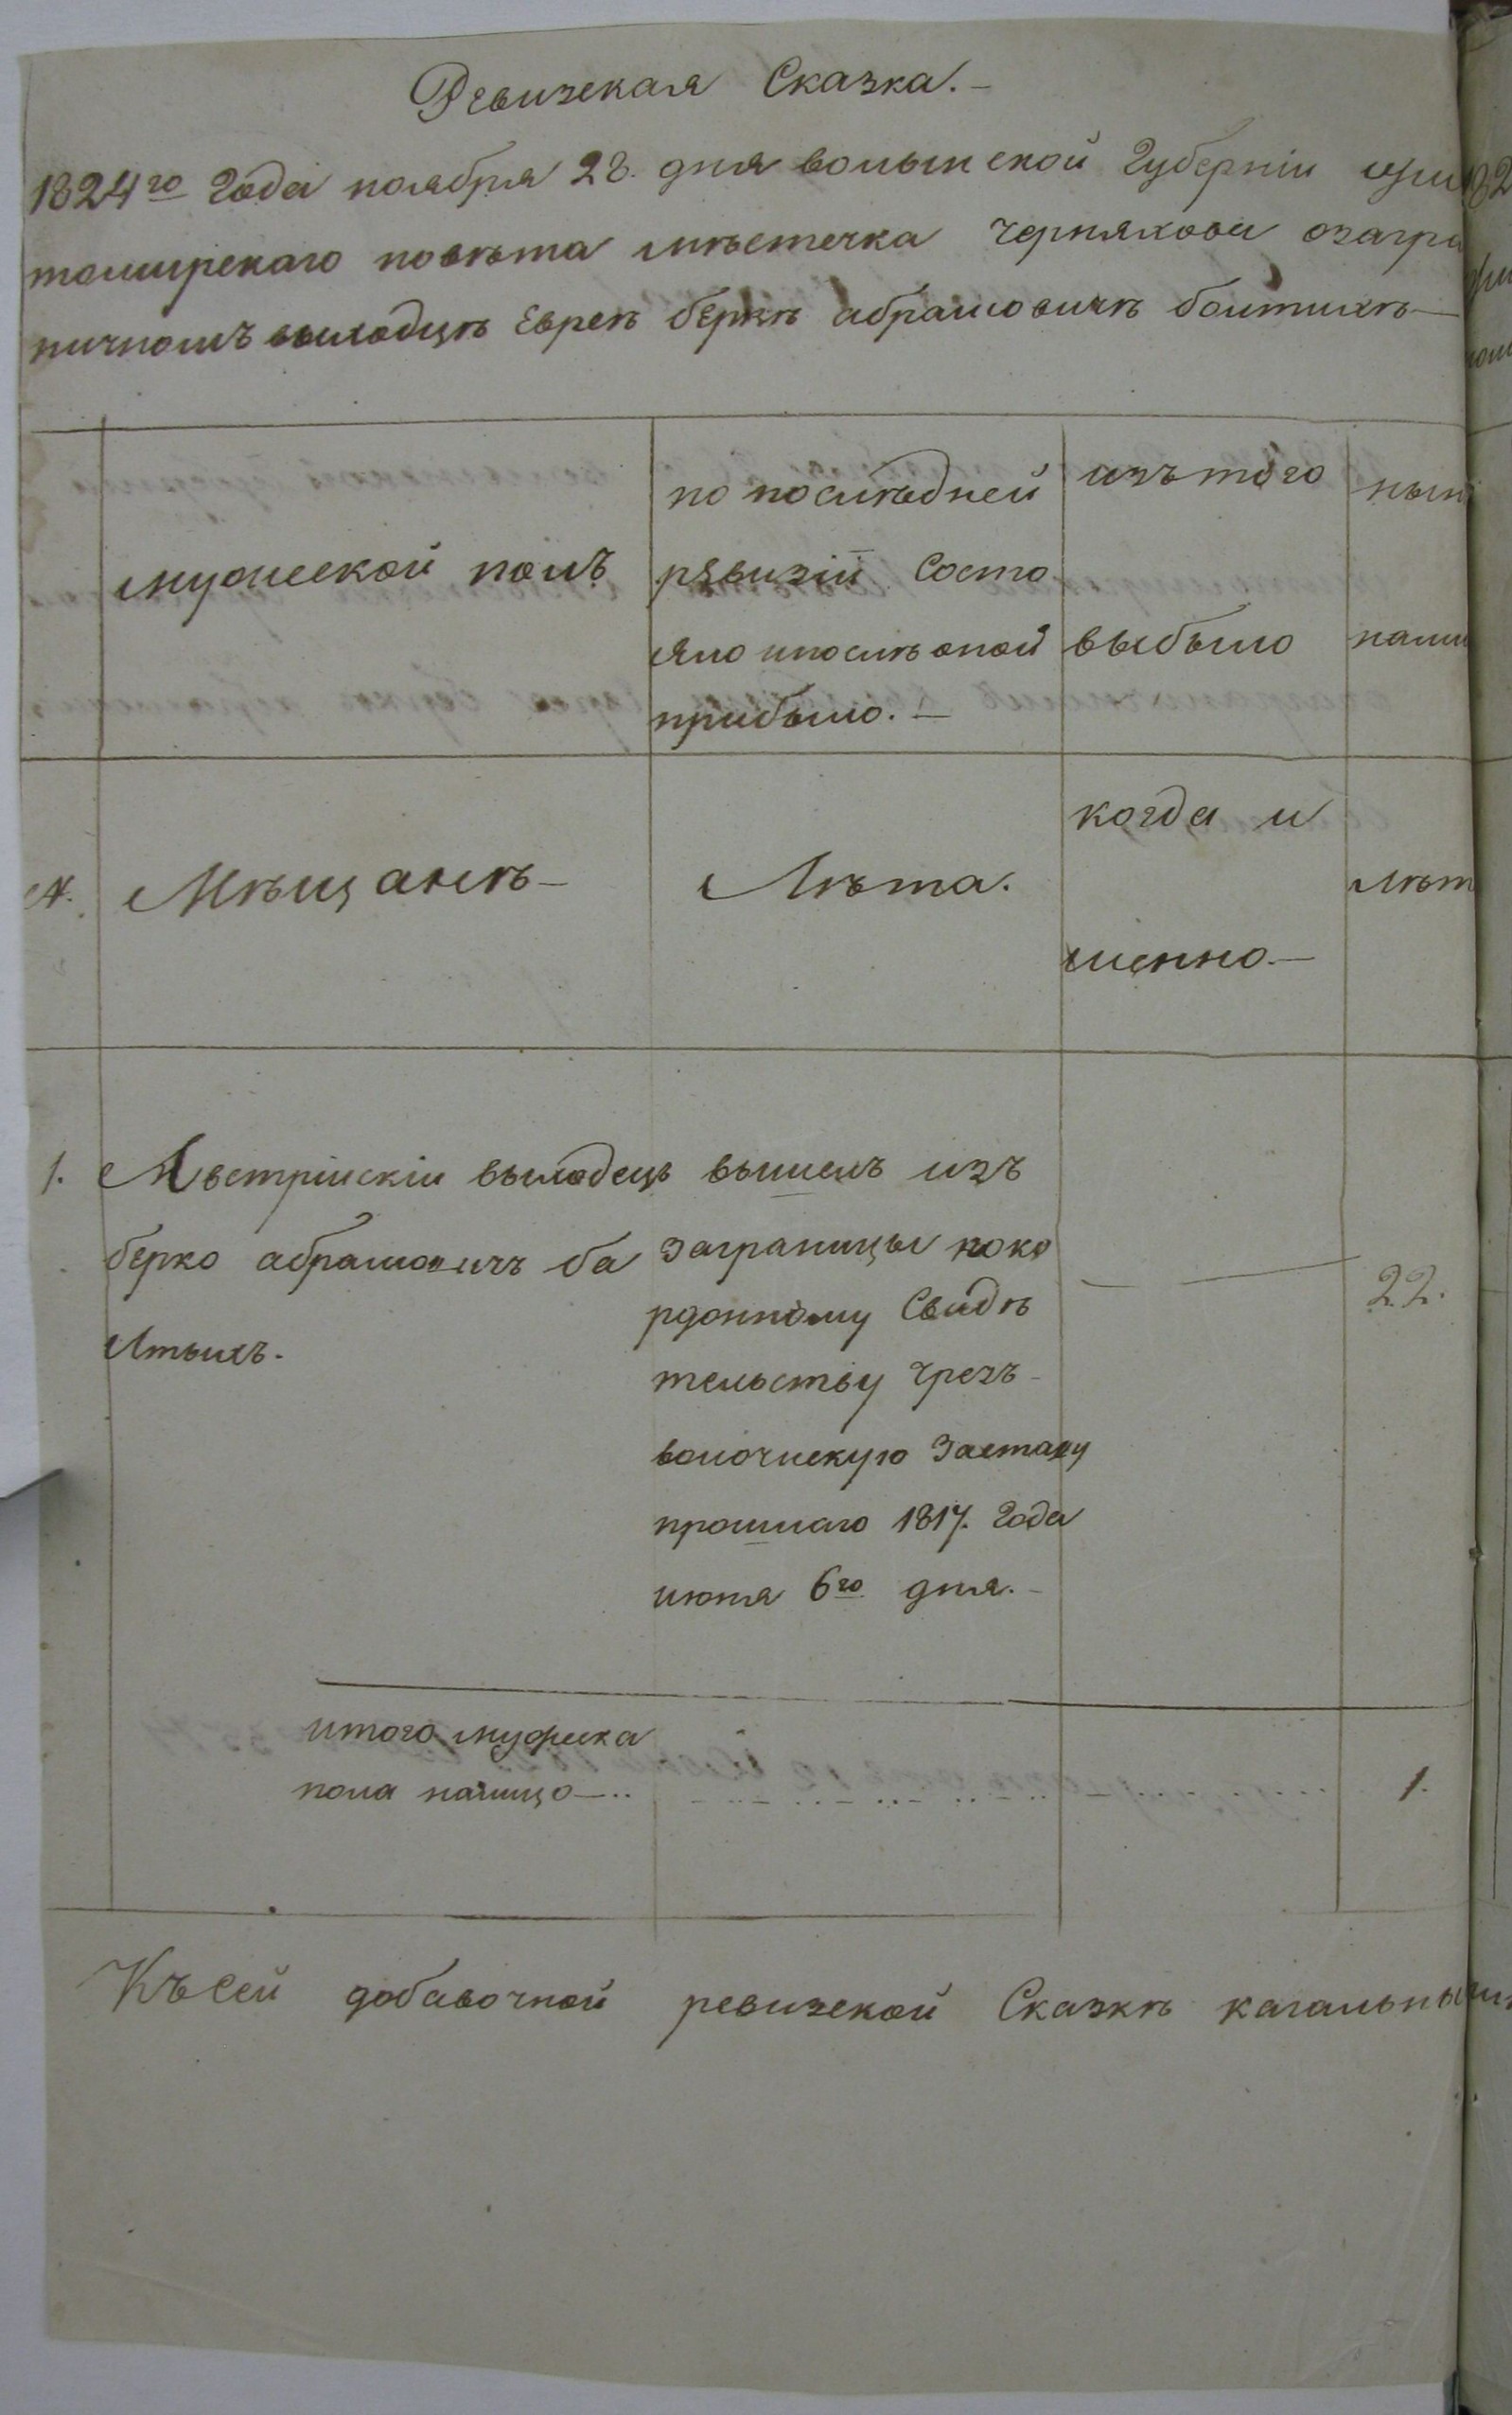 Ревизская Сказка.-
1824го Года ноября 28. дня волынской Губерніи жи
томирскаго повѣта мѣстечка Черняхова озагра
ничномъ выходцѣ Евреѣ беркѣ абрамовичѣболтихѣ—
мужеской полъ
по послѣдней
ревизіи Состо
яло и послѣ оной
прибыло.—
изъ того
выбыло
нын
нали
№.
Мѣщанѣ-
Лѣта.
когда и
имянно.—
лѣт
1.
Австрійскіи выходецъ
берко абрамовичъ ба
лтыхъ.
вышелъ изъ
заграницы поко
рдонному Свидѣ
тельству Чрезъ-
волочискую Заставу
прошлаго 1817. Года
июня 6го дня.-
22.
итого мужска
пола налицо—..
1.
Къ сей добавочной ревизской Сказкѣ кагальны